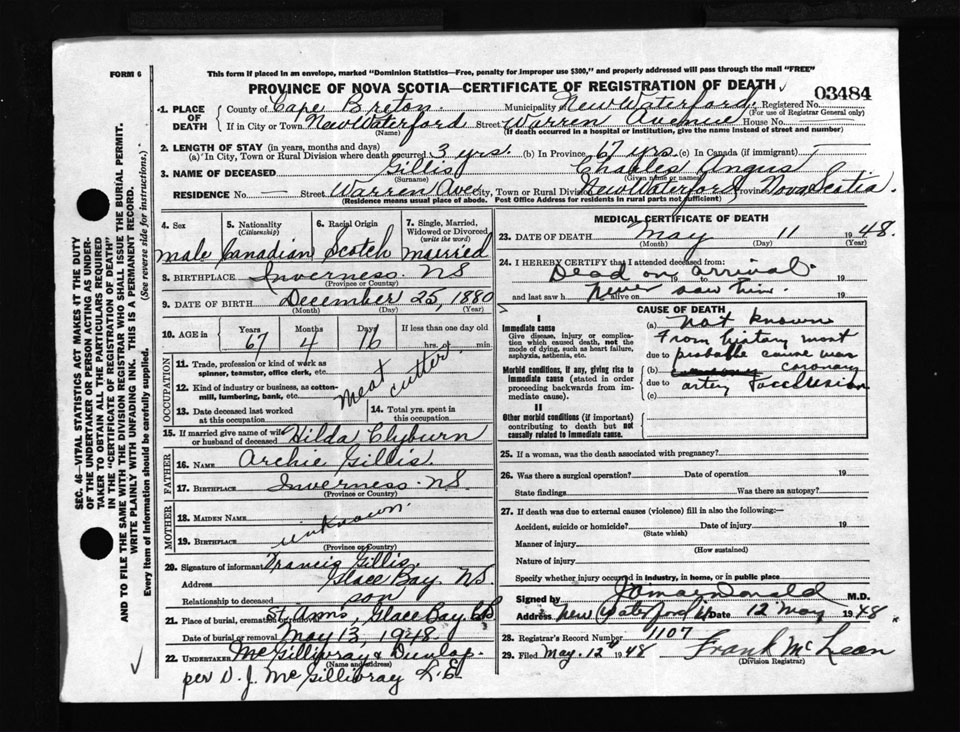 FORM 6
This form if placed in an envelope, marked "Dominion Statistics—Free, penalty for improper use $300," and properly addressed will pass through the mail "FREE"
PROVINCE OF NOVA SCOTIA—CERTIFICATE OF REGISTRATION OF DEATH
03484
1. PLACE OF DEATH
County of Cape Breton Municipality New Waterford Registered No.
(For use of Registrar General only)
If in City or Town New Waterford Street Warren Avenue House No.
(Name) (If death occurred in a hospital or institution, give the name instead of street and number)
2. LENGTH OF STAY (in years, months and days)
(a) In City, Town or Rural Division where death occurred 3 yrs. (b) In Province 67 yrs. (c) In Canada (if immigrant) —
3. NAME OF DECEASED Gillis Charles Angus
(Surname) (Given name or names)
RESIDENCE No. — Street Warren Ave City, Town or Rural Division New Waterford Province Nova Scotia
(Residence means usual place of abode. Post Office Address for residents in rural parts not sufficient)
4. Sex
male
5. Nationality
(Citizenship)
Canadian
6. Racial Origin
Scotch
7. Single, Married, Widowed or Divorced
(write the word)
married
8. BIRTHPLACE Inverness. NS
(Province or Country)
9. DATE OF BIRTH December 25, 1880
(Month) (Day) (Year)
10. AGE in Years Months Days If less than one day old
67 4 16 hrs. or min.
OCCUPATION
11. Trade, profession or kind of work as spinner, teamster, office clerk, etc.
meat cutter
12. Kind of industry or business, as cotton-mill, lumbering, bank, etc.
13. Date deceased last worked at this occupation
14. Total yrs. spent in this occupation
15. If married give name of wife or husband of deceased Hilda Clyburn
FATHER
16. NAME Archie Gillis.
17. BIRTHPLACE Inverness. NS.
(Province or Country)
MOTHER
18. MAIDEN NAME
unknown.
19. BIRTHPLACE
(Province or Country)
20. Signature of informant Francis Gillis
Address Glace Bay. NS.
Relationship to deceased son
21. Place of burial, cremation or removal St Anns, Glace Bay CB
Date of burial or removal May 13, 1948.
22. UNDERTAKER McGillivray & Dunlap.
(Name and address)
per D. J. McGillivray L.E.
MEDICAL CERTIFICATE OF DEATH
23. DATE OF DEATH May 11 1948.
(Month) (Day) (Year)
24. I HEREBY CERTIFY that I attended deceased from:
Dead on arrival. 19
and last saw h alive on 19
Never saw him.
CAUSE OF DEATH
I
Immediate cause
Give disease, injury or complication which caused death, not the mode of dying, such as heart failure, asphyxia, asthenia, etc.
Morbid conditions, if any, giving rise to immediate cause (stated in order proceeding backwards from immediate cause).
II
Other morbid conditions (if important) contributing to death but not causally related to immediate cause.
(a) Not known
From history most
due to probable cause was
(b) coronary
due to artery occlusion
(c)
25. If a woman, was the death associated with pregnancy?
26. Was there a surgical operation? Date of operation 19
State findings Was there an autopsy?
27. If death was due to external causes (violence) fill in also the following:—
Accident, suicide or homicide? Date of injury 19
(State which)
Manner of injury
(How sustained)
Nature of injury
Specify whether injury occurred in industry, in home, or in public place
Signed by M.D.
Address New Waterford Date 12 May 1948
28. Registrar's Record Number 1107
29. Filed May. 12th 1948 Frank McLean
(Division Registrar)
SEC. 46—VITAL STATISTICS ACT MAKES IT THE DUTY
OF THE UNDERTAKER OR PERSON ACTING AS UNDER-
TAKER TO OBTAIN ALL THE PARTICULARS REQUIRED
IN THE "CERTIFICATE OF REGISTRATION OF DEATH"
AND TO FILE THE SAME WITH THE DIVISION REGISTRAR WHO SHALL ISSUE THE BURIAL PERMIT.
WRITE PLAINLY WITH UNFADING INK. THIS IS A PERMANENT RECORD.
Every item of information should be carefully supplied. (See reverse side for instructions.)